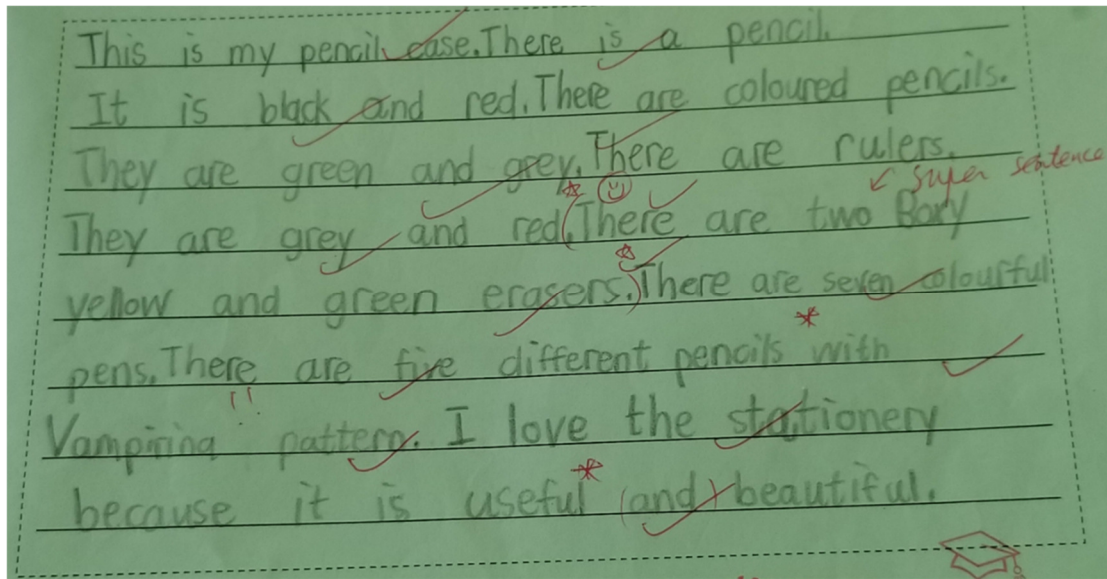 This is my pencil case.There is a pencil.
It is black and red.There are coloured pencils.
They are green and grey.There are rulers.
super sentence
They are grey and red.(There are two Bory
yellow and green erasers.)There are seven colourful
pens.There are five different pencils with
Vampiring pattern. I love the stationery
because it is useful (and) beautiful.